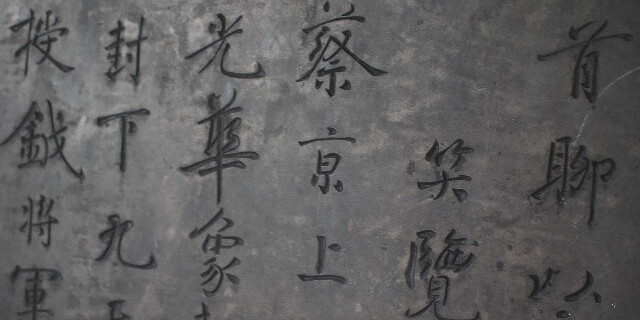 首聊以
笑覽
蔡京上
光華象
封下九
授鉞將軍